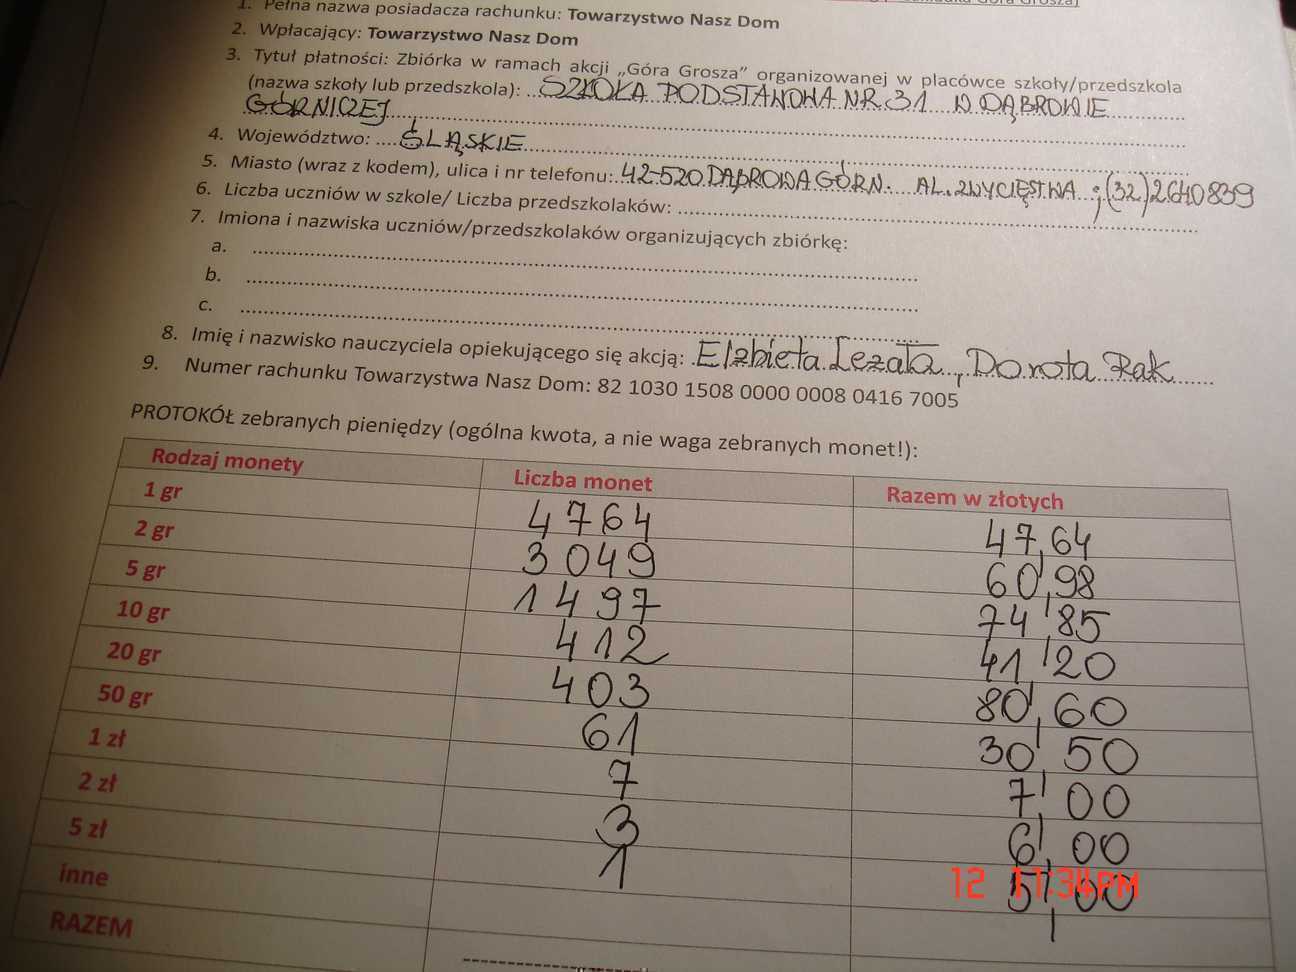 1. Pełna nazwa posiadacza rachunku: Towarzystwo Nasz Dom
2. Wpłacający: Towarzystwo Nasz Dom
3. Tytuł płatności: Zbiórka w ramach akcji „Góra Grosza” organizowanej w placówce szkoły/przedszkola
(nazwa szkoły lub przedszkola): SZKOŁA PODSTAWOWA NR 31 W DĄBROWIE
GÓRNICZEJ
4. Województwo: ŚLĄSKIE
5. Miasto (wraz z kodem), ulica i nr telefonu: 42-520 DĄBROWA GÓRN. AL. ZWYCIĘSTWA ; (32) 2640839
6. Liczba uczniów w szkole/ Liczba przedszkolaków:
7. Imiona i nazwiska uczniów/przedszkolaków organizujących zbiórkę:
a.
b.
c.
8. Imię i nazwisko nauczyciela opiekującego się akcją: Elżbieta Dorota Rak
9. Numer rachunku Towarzystwa Nasz Dom: 82 1030 1508 0000 0008 0416 7005
PROTOKÓŁ zebranych pieniędzy (ogólna kwota, a nie waga zebranych monet!):
Rodzaj monety Liczba monet Razem w złotych
1 gr 4764 47,64
2 gr 3049 60,98
5 gr 1497 74,85
10 gr 412 41,20
20 gr 403 80,60
50 gr 61 30,50
1 zł 7 7,00
2 zł 3 6,00
5 zł 1 5,00
12 11:34PM
inne
RAZEM